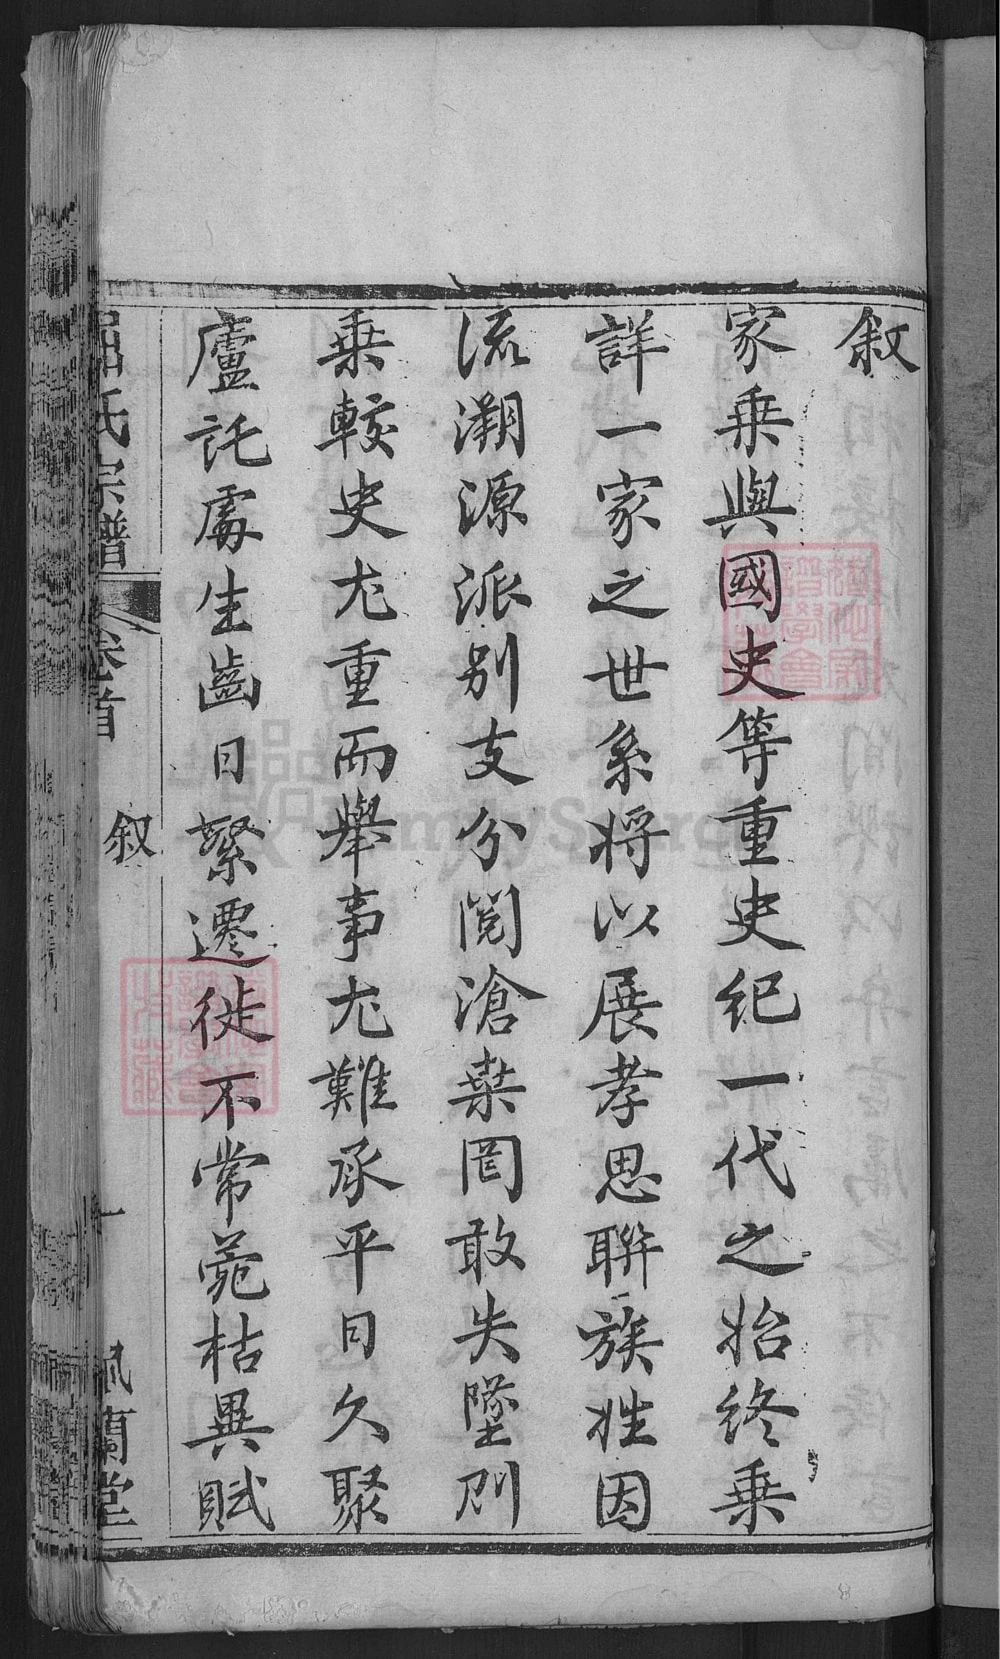 叙
家乗與國史等重史紀一代之始終乗
詳一家之世系將以展孝思聨族姓因
流溯源派别支分閲滄桒罔敢失墜則
乗較史尤重而舉事尤難承平日久聚
廬託處生齒日繁遷徙不常菀枯異賦
屈氏宗譜 卷首 叙 一 蘭堂
FamilySearch